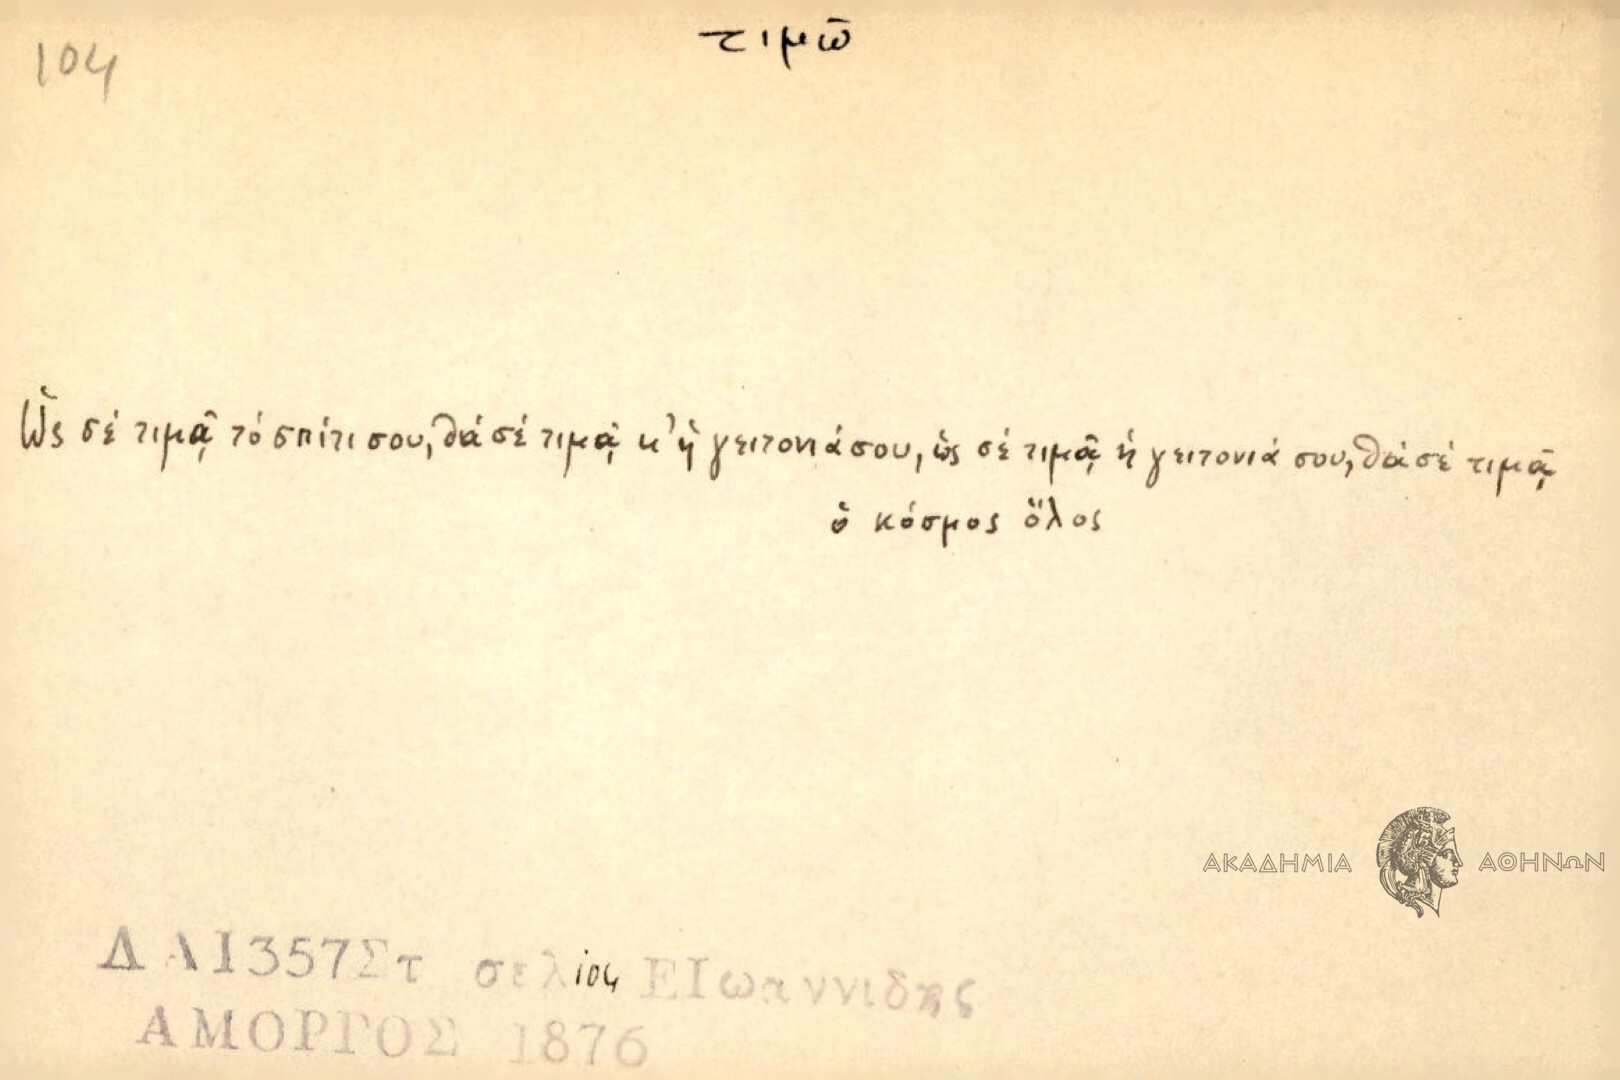 104
τιμῶ
Ὡς σέ τιμᾷ τό σπίτι σου, θά σέ τιμᾷ κ' ἡ γειτονιά σου, ὡς σέ τιμᾷ ἡ γειτονιά σου, θά σέ τιμᾷ
ὁ κόσμος ὅλος
ΑΚΑΔΗΜΙΑ ΑΘΗΝΩΝ
ΔΑ1357Στ σελ 104 ΕΙωαννιδης
ΑΜΟΡΓΟΣ 1876